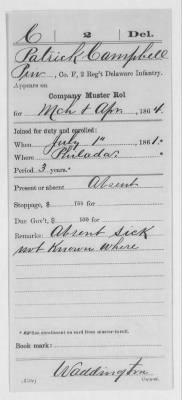 C | 2 | Del.
Patrick Campbell
Pvt., Co. F, 2 Reg't Delaware Infantry.
Appears on
Company Muster Roll
for Mch & Apr, 1864.
Joined for duty and enrolled:
When July 1st, 1861.
Where Philada.
Period 3 years.*
Present or absent Absent
Stoppage, $ 100 for
Due Gov't, $ 100 for
Remarks: Absent sick
not known where
Book mark:
Waddington
Copyist.